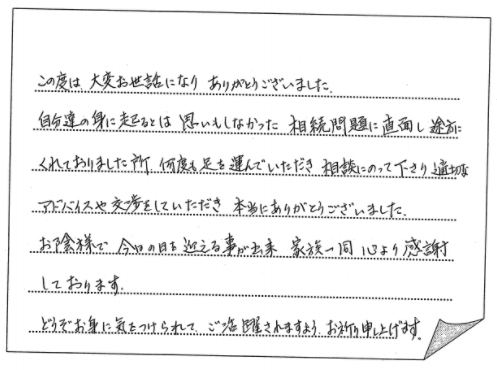 この度は 大変お世話になり ありがとうございました.
自分達の身に起るとは 思いもしなかった 相続問題に直面し 途方に
くれておりました所 何度も足を運んでいただき 相談にのって下さり 適切な
アドバイスや交渉をしていただき 本当にありがとうございました.
お陰様で 今日の日を迎える事が出来 家族一同 心より感謝
しております.
どうぞお身に気をつけられて ご活躍されますよう お祈り申し上げます.